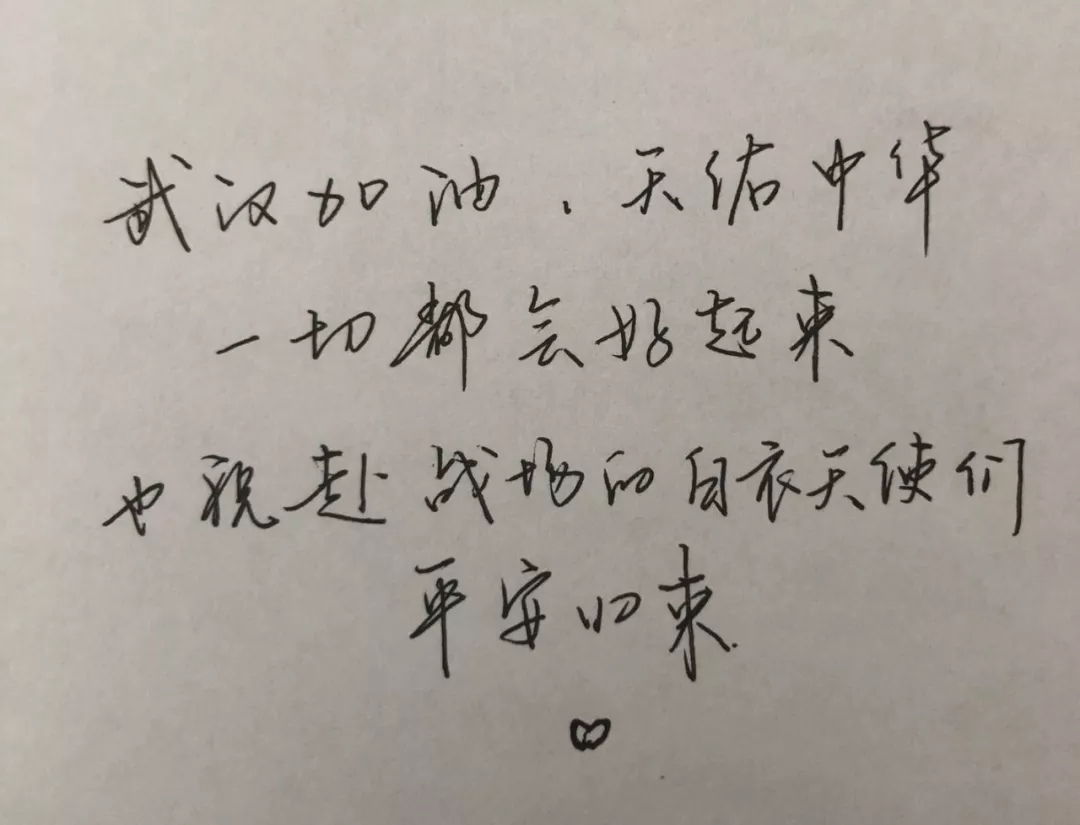 武汉加油、天佑中华
一切都会好起来
也祝赴战场的白衣天使们
平安归来.